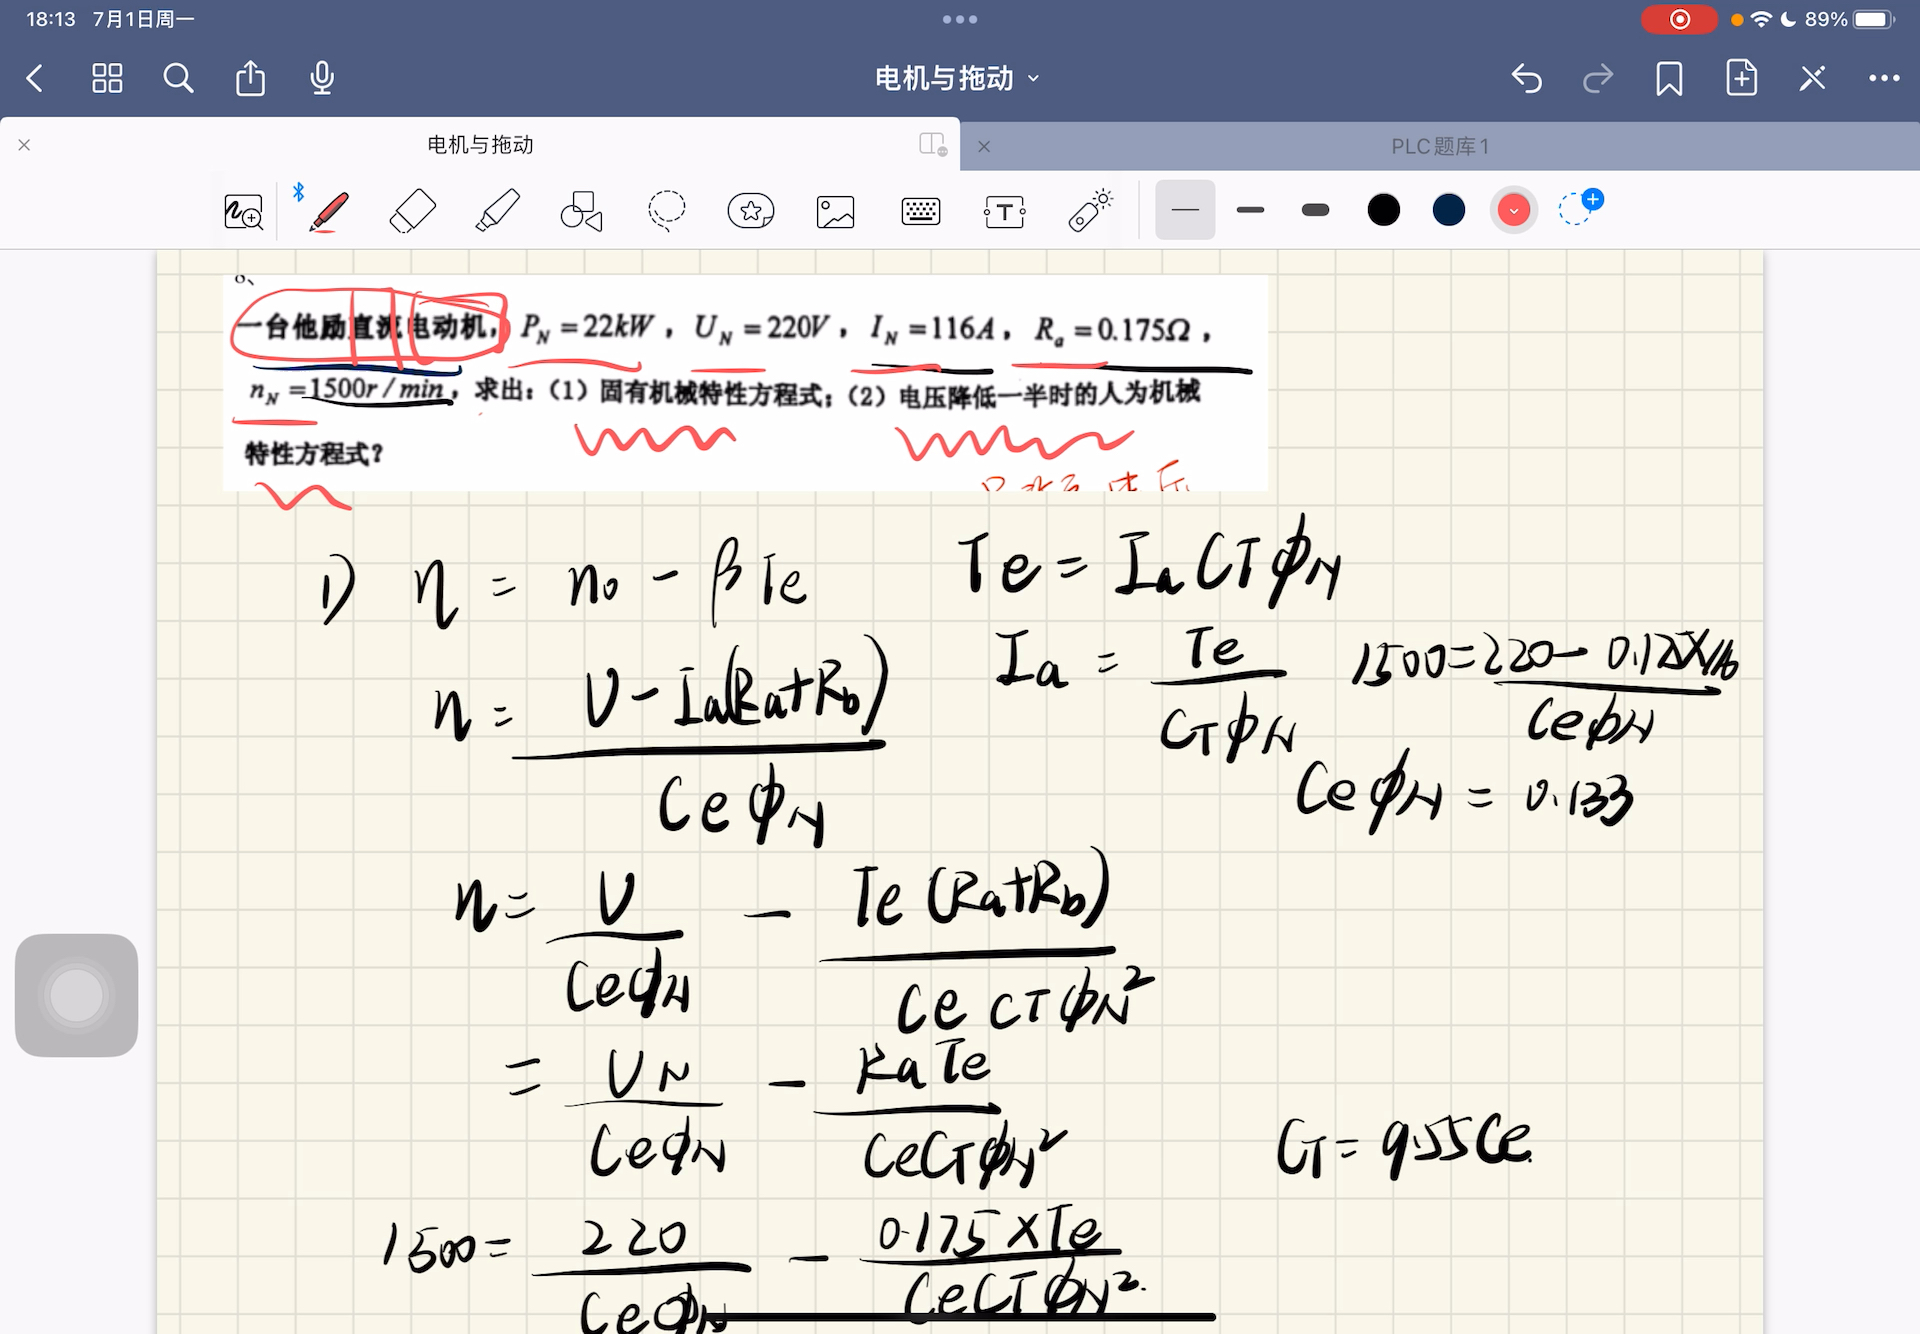 18:13 7月1日周一
89%
电机与拖动
电机与拖动
PLC题库1
一台他励直流电动机, P_N = 22kW , U_N = 220V , I_N = 116A , R_a = 0.175Ω ,
n_N = 1500r/min, 求出: (1) 固有机械特性方程式; (2) 电压降低一半时的人为机械
特性方程式?
1) n = n0 - βTe
Te = Ia CT φN
Ia = Te / CTφN
n = U - Ia(Ra+Rb) / CeφN
1500 = 220 - 0.175×116 / CeφN
CeφN = 0.133
n = U / CeφN - Te(Ra+Rb) / Ce CT φN²
= UN / CeφN - RaTe / CeCTφN²
CT = 9.55Ce.
1500 = 220 / CeφN - 0.175×Te / CeCTφN².